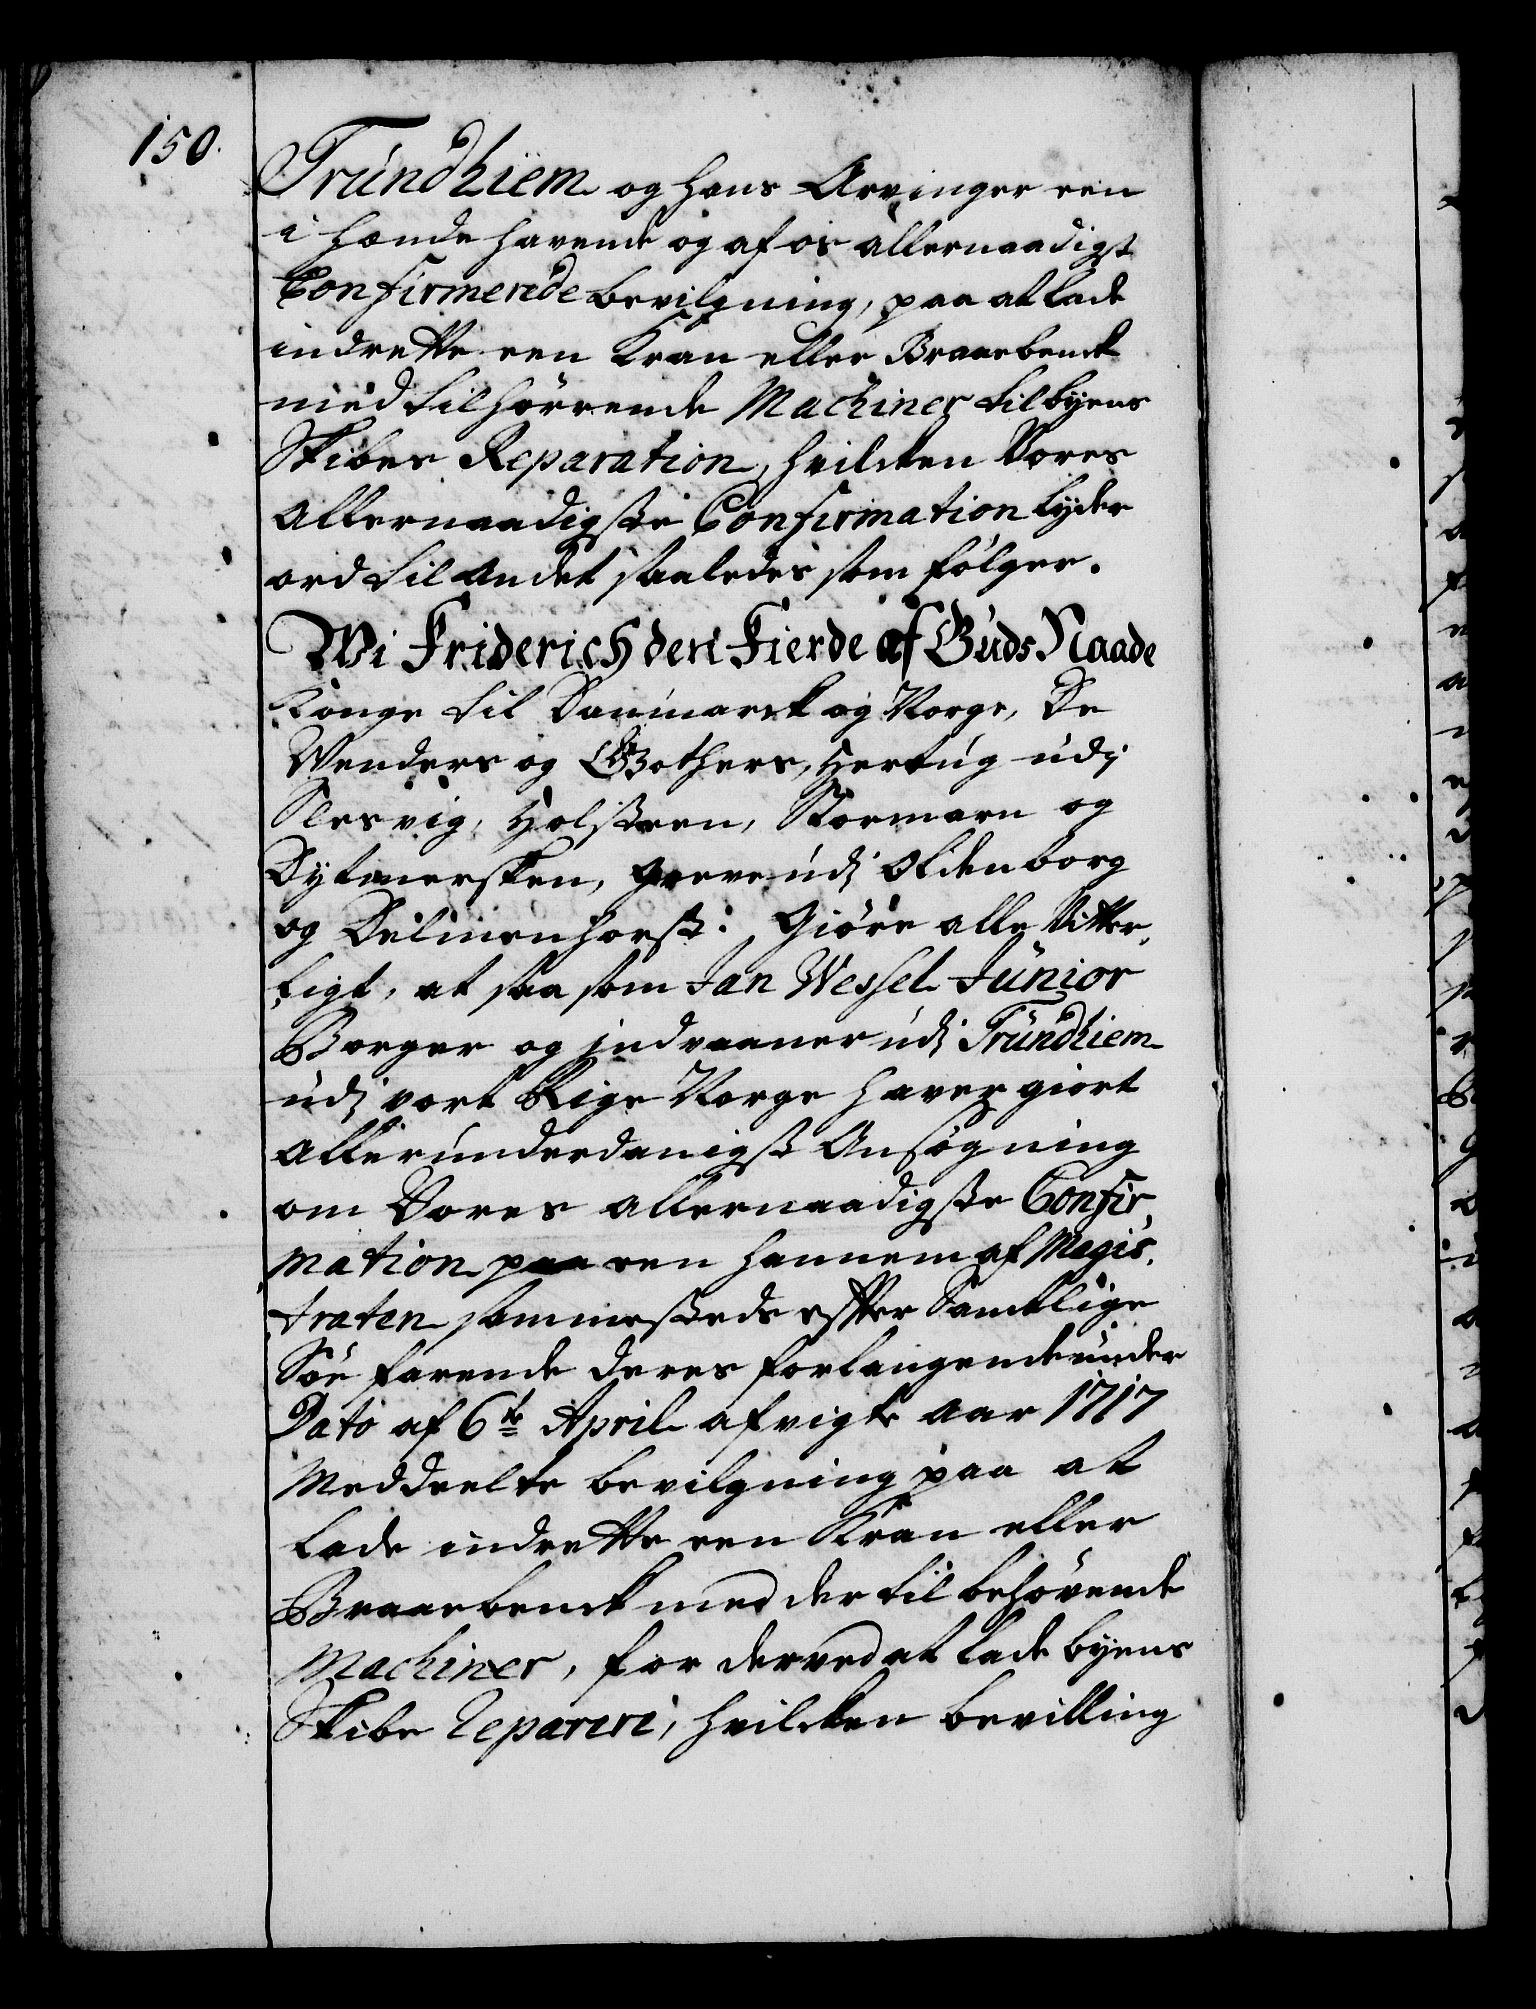 150.
Trundhiem og hans Arvinger een
i hænde havende og af os allernaadigst
Confirmerede bevilgning, paa at lade
indrette een Kran eller Braaebenck
med tilhörrende Machiner til byens
Skibes Reparation, hvilcken Vores
allernaadigste Confirmation lyder
ord til andet saaledes som følger.
Wi Friderich den Fierde af Guds Naade
Konge til Danmarck og Norge, De
Wenders og Gothers, Hertug udj
Slesvig, Holsteen, Stormarn og
Dytmersken, Greve udj Oldenborg
og Delmenhorst: Giöre alle Vitter,
ligt, at saasom Jan Wessel Junior
Borger og jndvaaner udj Trundhiem
udj vort Rige Norge haver giort
allerunderdanigst Ansøgning
om Vores allernaadigste Confir,
mation paa een hannem af Magis,
traten sammesteds efter Samtlige
Söefarende deres forlangende under
Dato af 6te April afvigte Aar 1717
Meddeelte bevilgning paa at
lade indrette een Kran eller
Braaebenck med der til behövende
Machiner, for derved at lade byens
Skibe reparere, hvilcken bevilling